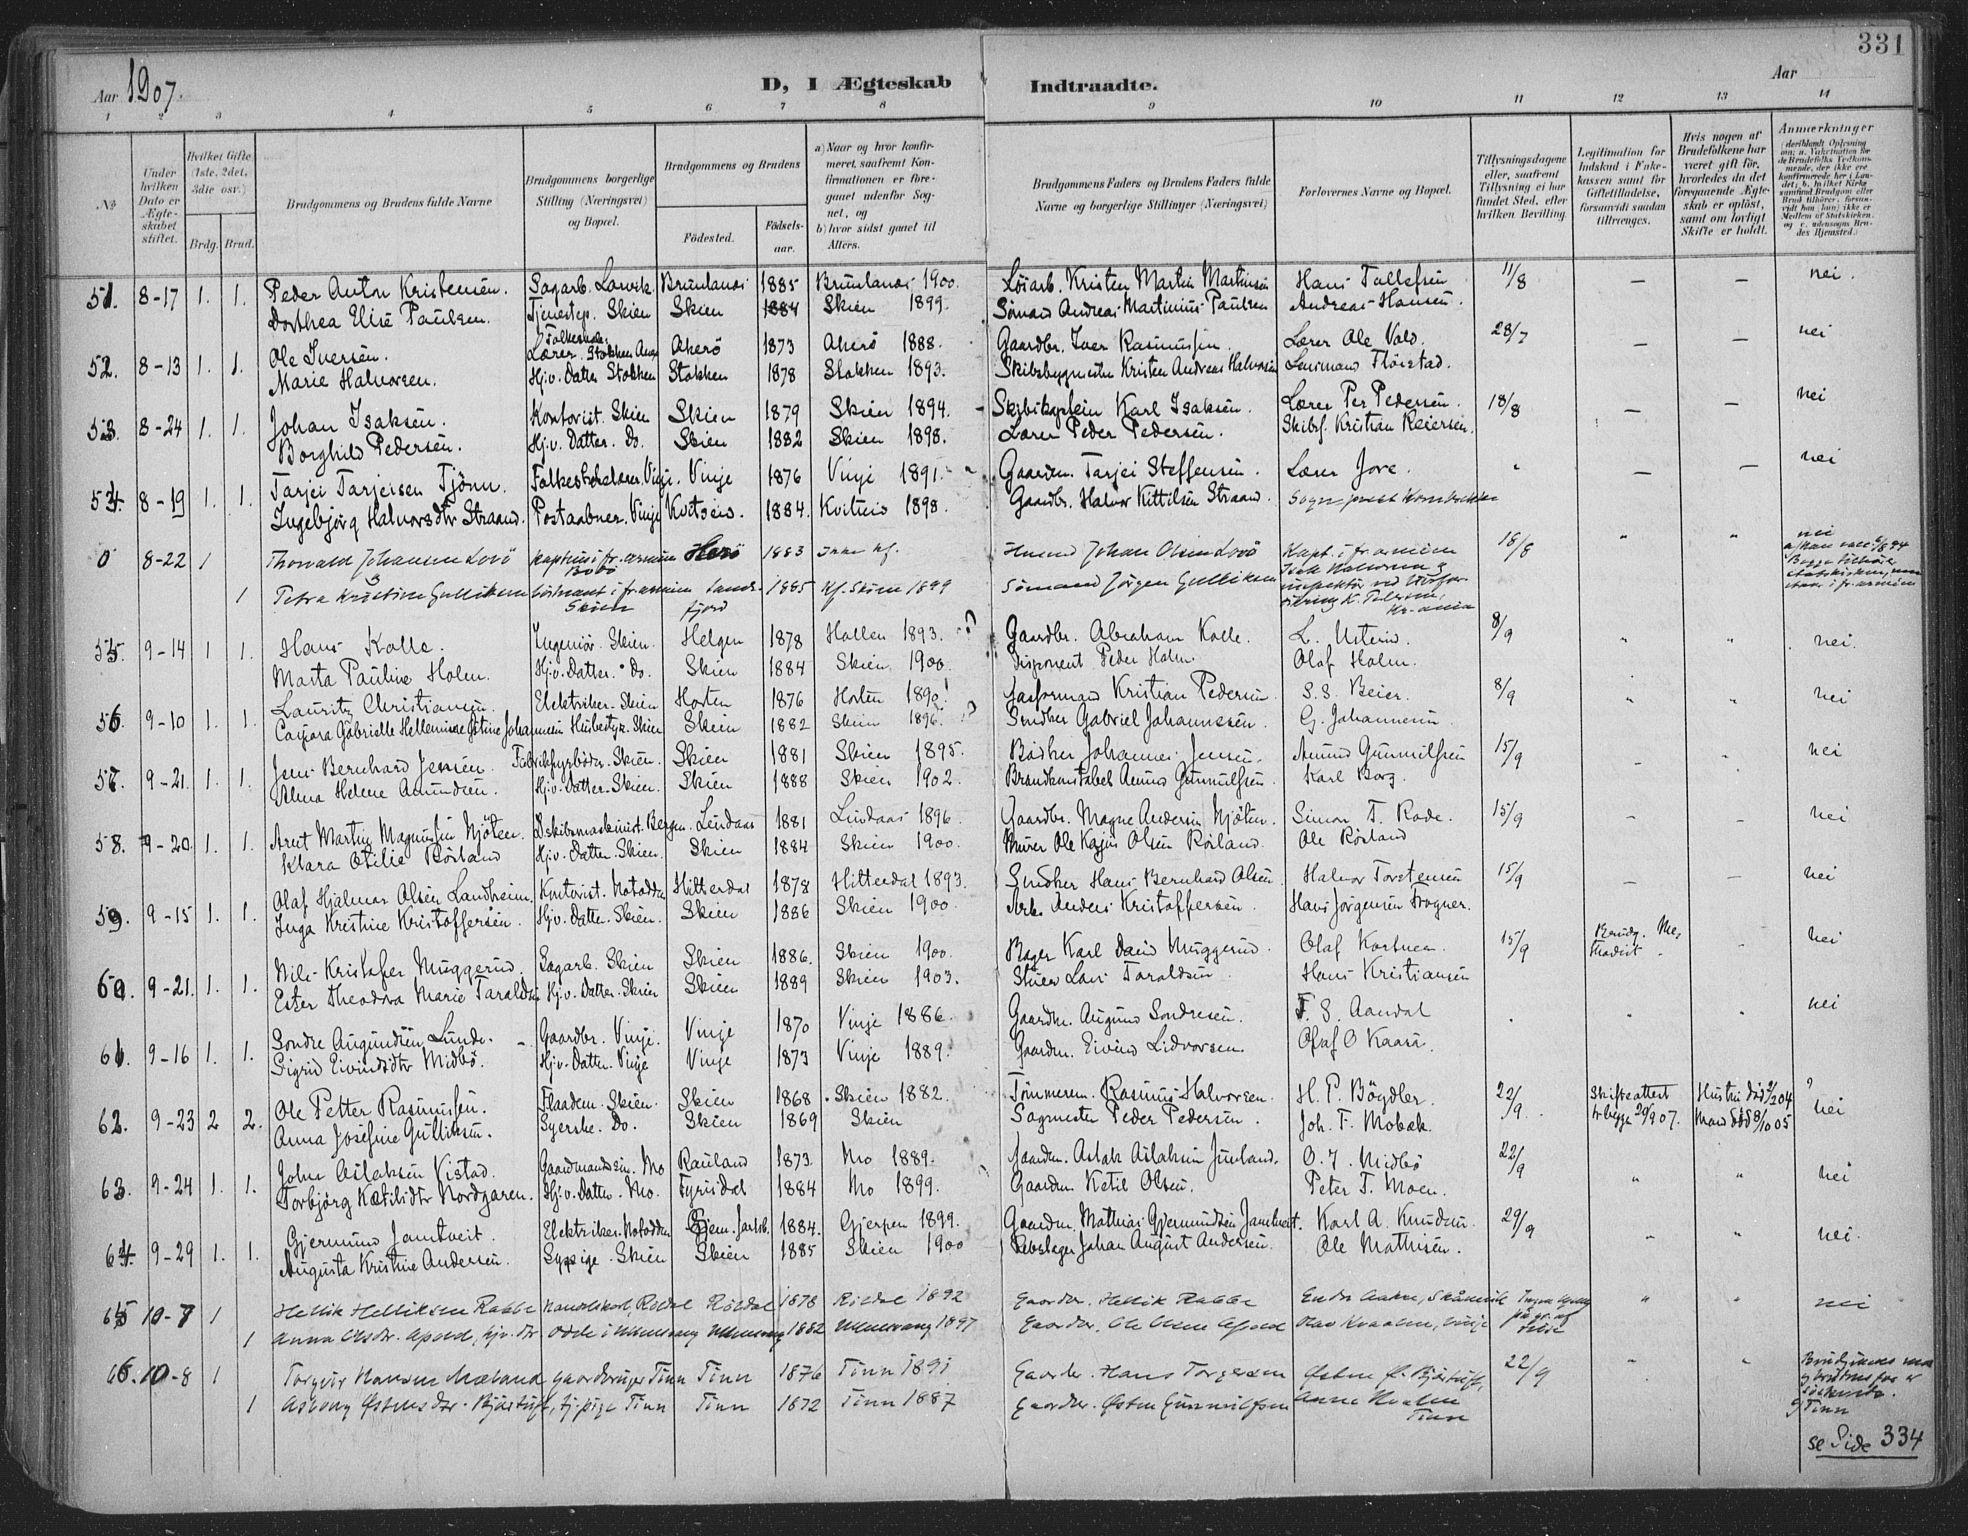 331
Aar 1907.
D, I Ægteskab Indtraadte.
Aar
1 2 3 4 5 6 7 8 9 10 11 12 13 14
№
Under hvilken Dato er Ægteskabet stiftet.
Hvilket Gifte (1ste, 2det, 3die osv.)
Brdg. Brud.
Brudgommens og Brudens fulde Navne
Brudgommens borgerlige Stilling (Næringsvei) og Bopæl.
Brudgommens og Brudens
Fødested. Fødselsaar.
a) Naar og hvor konfirmeret, saafremt Konfirmationen er foregaaet udenfor Sognet, og
b) hvor sidst gaaet til Alters.
Brudgommens Faders og Brudens Faders fulde Navne og borgerlige Stillinger (Næringsvei)
Forlovernes Navne og Bopæl.
Tillysningsdagene eller, saafremt Tillysning ei har fundet Sted, efter hvilken Bevilling.
Legitimation for Indskud i Enkekassen samt for Giftetilladelse, forsaavidt saadan tiltrænges.
Hvis nogen af Brudefolkene har været gift før, hvorledes da det foregaaende Ægteskab er opløst, samt om lovligt Skifte er holdt.
Anmærkninger
51. 8-17 1. 1. Peder Anton Kristensen. Sagarb. Larvik Brunlanæs 1885 Brunlanæs 1900. Løsarb. Kristen Martin Martinsen Hans Tollefsen 11/8 — — nei.
Dorthea Elise Paulsen. Tjenestep. Skien Skien 1884 Skien 1899. Sømand Andreas Martinius Paulsen Andreas Hansen.
52. 8-13 1. 1. Ole Iversen. Folkeskole- Lærer. Stokken Akerø 1873 Akerø 1888. Gaardbr. Iver Rasmussen. Lærer Ole Vold. 28/7 — — nei
Marie Halvorsen. Hj.v. Datter Stokken Stokken 1878 Stokken 1893. Skibsbygmester Kristen Andreas Halvorsen Lensmand Fløistad.
53. 8-24 1. 1. Johan Isaksen. Kontorist. Skien Skien 1879 Skien 1894. Skibskaptein Karl Isaksen. Lærer Per Pedersen. 18/8 — — nei
Borghild Pedersen. Hj.v. Datter. Do. Skien 1882 Skien 1898. Lærer Peder Pedersen. Skibsf. Kristian Reiersen.
54. 8-19 1. 1. Tarjei Tarjeisen Tjønn. Folkeskolelærer. Vinje. Vinje 1876 Vinje 1891. Gaardm. Tarjei Steffensen. Lærer Jore. " — — nei
Ingebjørg Halvorsdtr Straand. Postaabner. Vinje Kvitseid. 1884. Kvitseid 1898. Gaardbr. Halvor Kittilsen Straand. Sogneprest
0 8-22 1 Thorvald Johansen Lovø kaptein i fr. armeen Bodø Herø 1883 Ikke kf. Johan Olsen Lovø Kapt. i fr. armeen 18/8 " " nei
1 Petra Kristine Gulliksen løitnant i fr. armeen Skien Sandefjord 1885 Kf. Skien 1899 Sømand Jørgen Gulliksen
55. 9-14 1 1. Hans Kolle. Ingeniør. Skien. Helgen 1878 Hollen 1893. Gaardbr. Abraham Kolle. L. Usterud. 8/9 " " nei.
Marta Pauline Holm. Hj.v. Datter. Do. Skien 1884 Skien 1900. Disponent Peder Holm. Olaf Holm.
56. 9-10 1. 1. Lauritz Christiansen. Elektriker. Skien Horten 1876 Horten 1890. Kristian Pedersen. S. S. Beier. 8/9 " " nei
Caspara Gabrielle Hellemine Gitine Johannesen Husbestyr. Skien Skien 1882 Skien 1896. Snedker Gabriel Johannesen. G. Johannesen
57. 9-21. 1. 1. Jens Bernhard Jensen. Fabrikfyrbøder. Skien. Skien 1881 Skien 1895. Bødker Johannes Jensen. Amund Gunnulfsen 15/9 — " nei
Alma Helene Amundsen. Hj.v. Datter. Skien. Skien 1888 Skien 1902. Brandkonstabel Amund Gunnulfsen Karl Borg.
58. 9-20. 1. 1. Arnt Martin Magnussen Mjøten Dskibsmaskinist. Bergen. Lindaas 1881 Lindaas 1896. Gaardbr. Magne Andersen Mjøten. Simon T. Rode. 15/9 " " nei
Klara Otilie Rörland Hj.v. Datter. Skien. Skien 1884 Skien 1900. Murer Ole Kajus Olsen Rörland. Ole Rörland
59. 9-15 1. 1. Olaf Hjalmar Olsen Landheim. Kontorist. Notodden Hitterdal 1878 Hitterdal 1893. Snedker Hans Bernhard Olsen Halvor Torstensen 15/9 — — nei
Inga Kristine Kristoffersen. Hj.v. Datter. Skien. Skien 1886 Skien 1900. Arb. Anders Kristoffersen. Hans Jørgensen Frogner.
60. 9-21. 1. 1. Nils Kristofer Muggerud. Sagarb. Skien Skien 1886. Skien 1900. Bager Karl David Muggerud. Olaf Kortner. 15/9 Brudg. Methodist. nei
Ester Theodora Marie Taraldsen Hj.v. Datter. Skien Skien 1889 Skien 1903. Stuer Lars Taraldsen. Hans Kristiansen
61. 9-16 1. 1. Sondre Augundsen Lunde. Gaardbr. Vinje. Vinje 1870 Vinje 1886. Gaardm. Augund Sondresen. T. S. Aandal . " " nei
Sigrid Eivindsdtr Midbø. Hj.v. Datter. Vinje Vinje 1873 Vinje 1889. Gaardm. Eivind Lidvorsen. Olaf O Kaasa.
62. 9-23 2 2. Ole Petter Rasmussen. Flaadem. Skien. Skien 1868 Skien 1882. Tømmerm. Rasmus Halvorsen. H. P. Bögdler. 22/9. Skifteattest Hustru død 2/2 04 ? nei
Anna Josefine Gulliksen. Syerske. Do. Skien 1869 Skien Sagmester Peder Pedersen. Joh. F. Mobæk. for begge 20/9 07. Mand død 8/10 05
63. 9-24 1. 1. John Aslaksen Vistad. Gaardmandssøn. Mo Rauland 1873. Mo 1889. Gaardm. Aslak Aslaksen Juvland. O. J. Midbø 22/9 " " nei
Torbjørg Kætilsdtr Nordgaren. Hj.v. Datter. Mo. Fyrisdal 1884 Mo 1899. Gaardm. Ketil Olsen. Peter T. Moen.
64. 9-29 1. 1. Gjermund Jamtveit. Elektriker. Notodden 1884. Gjerpen 1899. Gaardm. Mathias Gjermundsen Jamtveit. Karl A. Knudsen. 29/9 " " nei.
Augusta Kristine Andersen. Sypige. Skien Skien 1885 Skien 1900 Rebslager Johan August Andersen. Ole Mathisen.
65 10-7 1 Hellik Helliksen Rabbe Handelskarl, Røldal Røldal 1878 Røldal 1892 Gaardbr. Hellik Rabbe " " nei
1 Anna Olsdr. Apold, hjv. dtr Odde i Ullensvang Ullensvang 1882 Ullensvang 1897 Gaardbr. Ole Olsen Apold Olav Kvaalen, Vinje
66. 10-8 1 Torgeir Hansen Mæland gaardbruger Tinn Tinn 1876 Tinn 1891 Gaardbr. Hans Torgersen Østen Ø. Bjørtuft, 22/9 " "
1 Aasborg Østensdr. Bjørtuft, hj. pige Tinn Tinn 1872 Tinn 1887 Gaardbr. Østen Gunnulfsen Anne Tinn Tinn
se Side 334